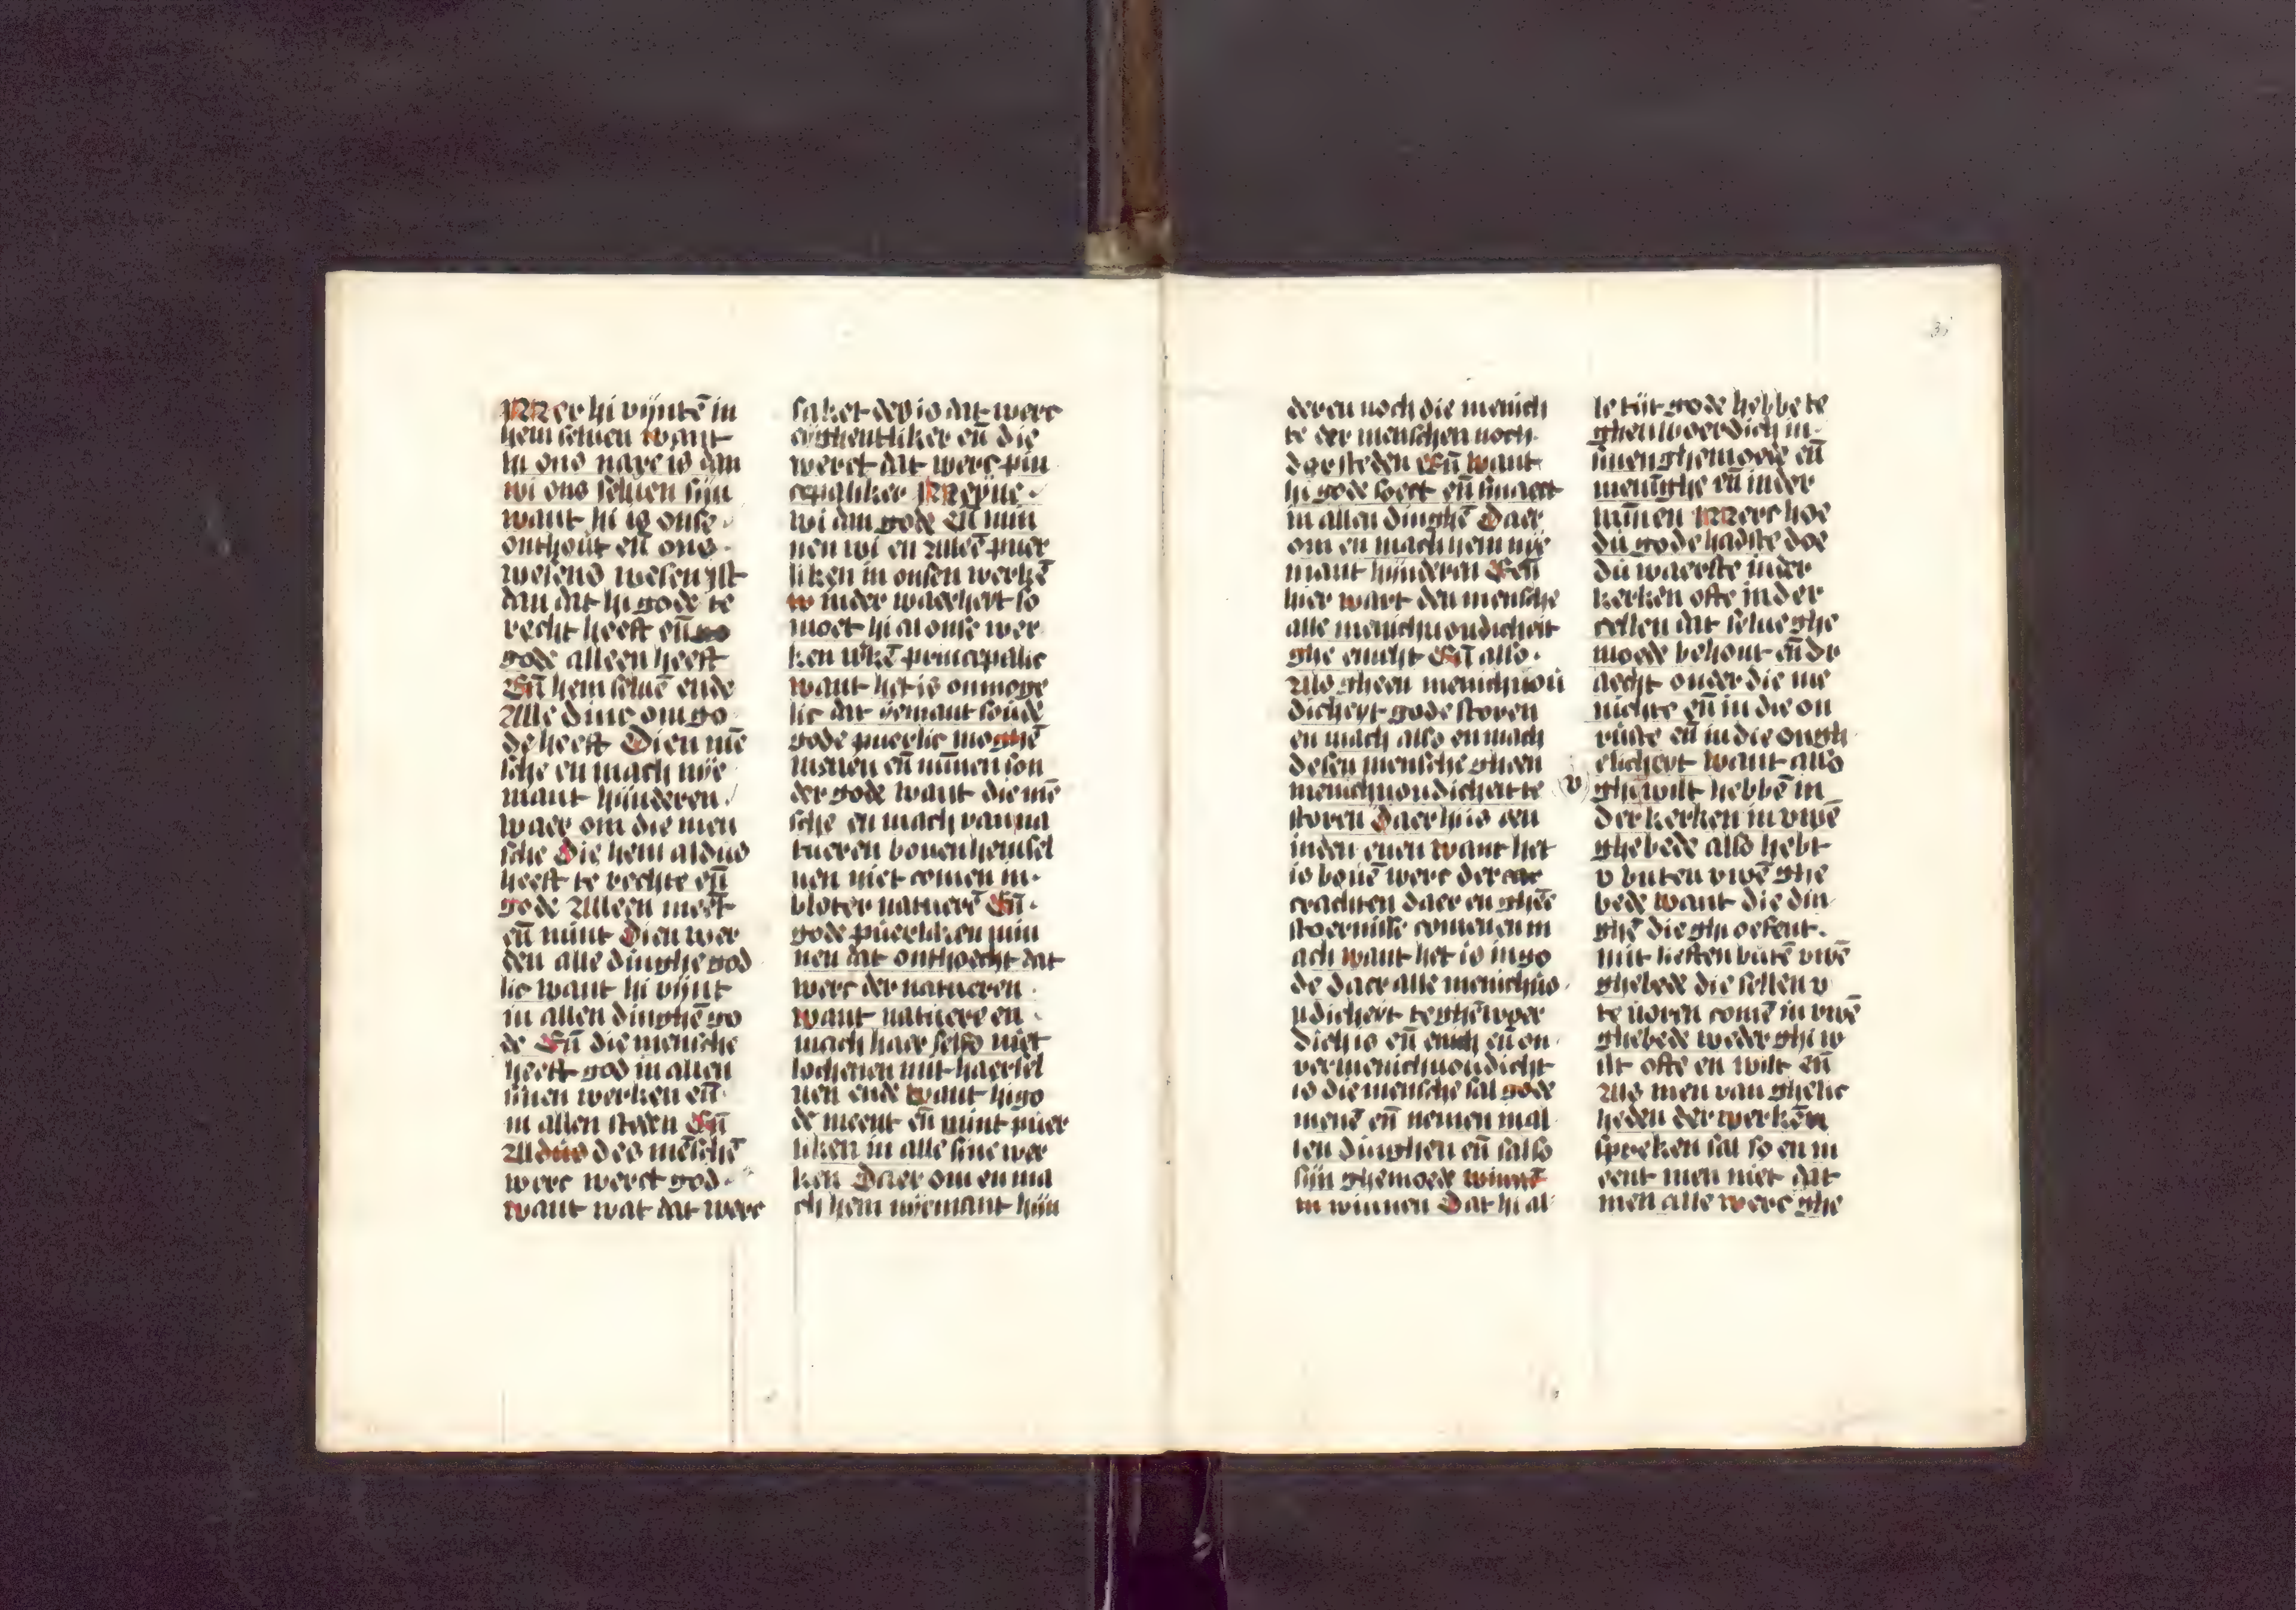 Mer hi vijntē in
hem seluen want
hi ons nare is dan
wi ons seluen sijn
want hi is onse
onthout eñ ons
wesens wesen ist
dan dat hi gode te
recht heeft eñ
gode alleen heeft
Eñ hem seluē ende
Alle dinc om go
de heeft Dien mē
sche en mach nye
mant hijnderen
waer om die men
sche Die hem aldus
heeft te rechte eñ
gode Alleen meēt
eñ mint Dien wer
den alle dinghe god
lic want hi vijnt
in allen dinghē go
de Eñ die mensche
heeft god in allen
sinen werken eñ
in allen steden Eñ
Aldus des mēschē
werc werct god
want wat dat werc
saket des is dat werc
eyghentliker eñ die
werct dat werc prin
cepaliker Meyne
wi dan gode eñ min
nen wi en Alleē puer
liken in onsen werkē
inder waerheyt so
moet hi al onse wer
ken wkē princepalic
want het is onmoge
lic dat yemant soude
gode puerlic moghē
menen eñ mīnen son
der gode want die mē
sche en mach van na
tueren bouen hemsel
uen niet comen in
bloter natuerē Eñ
gode puerliken min
nen dat onthoecht dat
werc der natueren
want natuere en
mach haer selfs niet
lochenen mit haersel
uen ende want hi go
de meent eñ mint puer
liken in alle sine wer
ken Daer om en ma
ch hem nyemant hijn
deren noch die menich
te der menschen noch
der steden Eñ want
hi gode soect eñ smaect
in allen dinghē Daer
om en mach hem nye
mant hijnderen Eñ
hier wart den mensche
alle menichuoudicheit
ghe enicht Eñ also
Als gheen menichuou
dicheyt gode storen
en mach also en mach
desen mensche gheen
menichuoudicheit te
storen Daer hi is een
inden enen want het
is bouē werc der
crachten daer en gheē
stoernisse comen en m
ach want het is in go
de daer alle menichuo
udicheyt teghēwoer
dich is eñ enich eñ on
vermenichuoudicht
is die mensche sal gode
menē eñ nemen in al
len dinghen eñ sal so
sijn ghemoede
winnen Dat hi al
le tijt gode hebbe te
ghenwoerdich in
sinen ghemoede eñ
menīghe eñ inder
mīnen Merc hoe
du gode hadste doe
du waerste inder
kerken ofte inder
cellen dat selue ghe
moede behout eñ dr
aecht onder die me
nichte eñ in die on
ruste eñ in die ongh
elicheyt want also
ghi wilt hebbē in
der kerken in uwē
ghebede also hebt
v buten uwē ghe
bede want die din
ghē die ghi oefent
mit lieften butē uwē
ghebede die sellen v
te voren comē in uwē
ghebede weder ghi w
ilt ofte en wilt eñ
Als men van ghelic
heden der werkēn
spreken sal so en m
eent men niet dat
men alle werc ghe